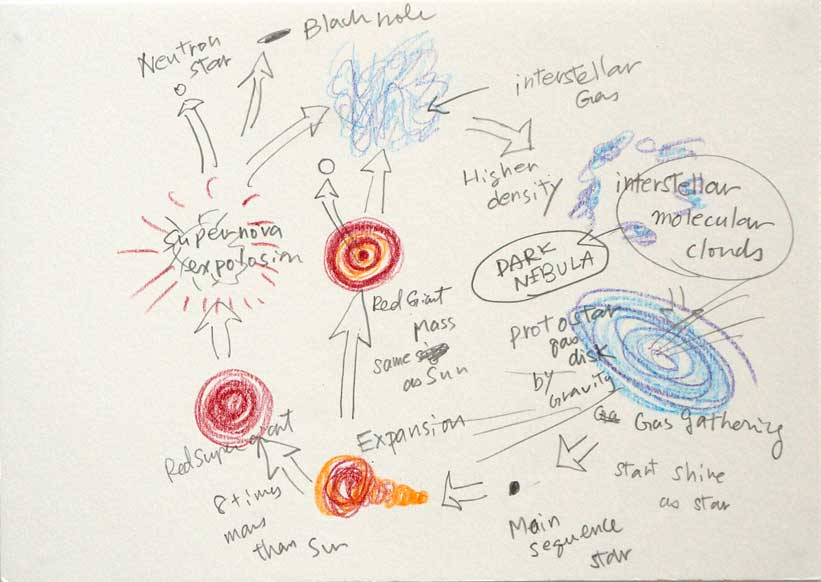 Neutron
star
Black hole
interstellar
Gas
Higher
density
interstellar
molecular
clouds
DARK
NIBULA
supernova
expolosion
Red Giant
mass
same
as Sun
protostar
gas
disk
by
Gravity
Gas gathering
Expansion
Red Super giant
8 times
mass
than Sun
start shine
as star
Main
sequence
star